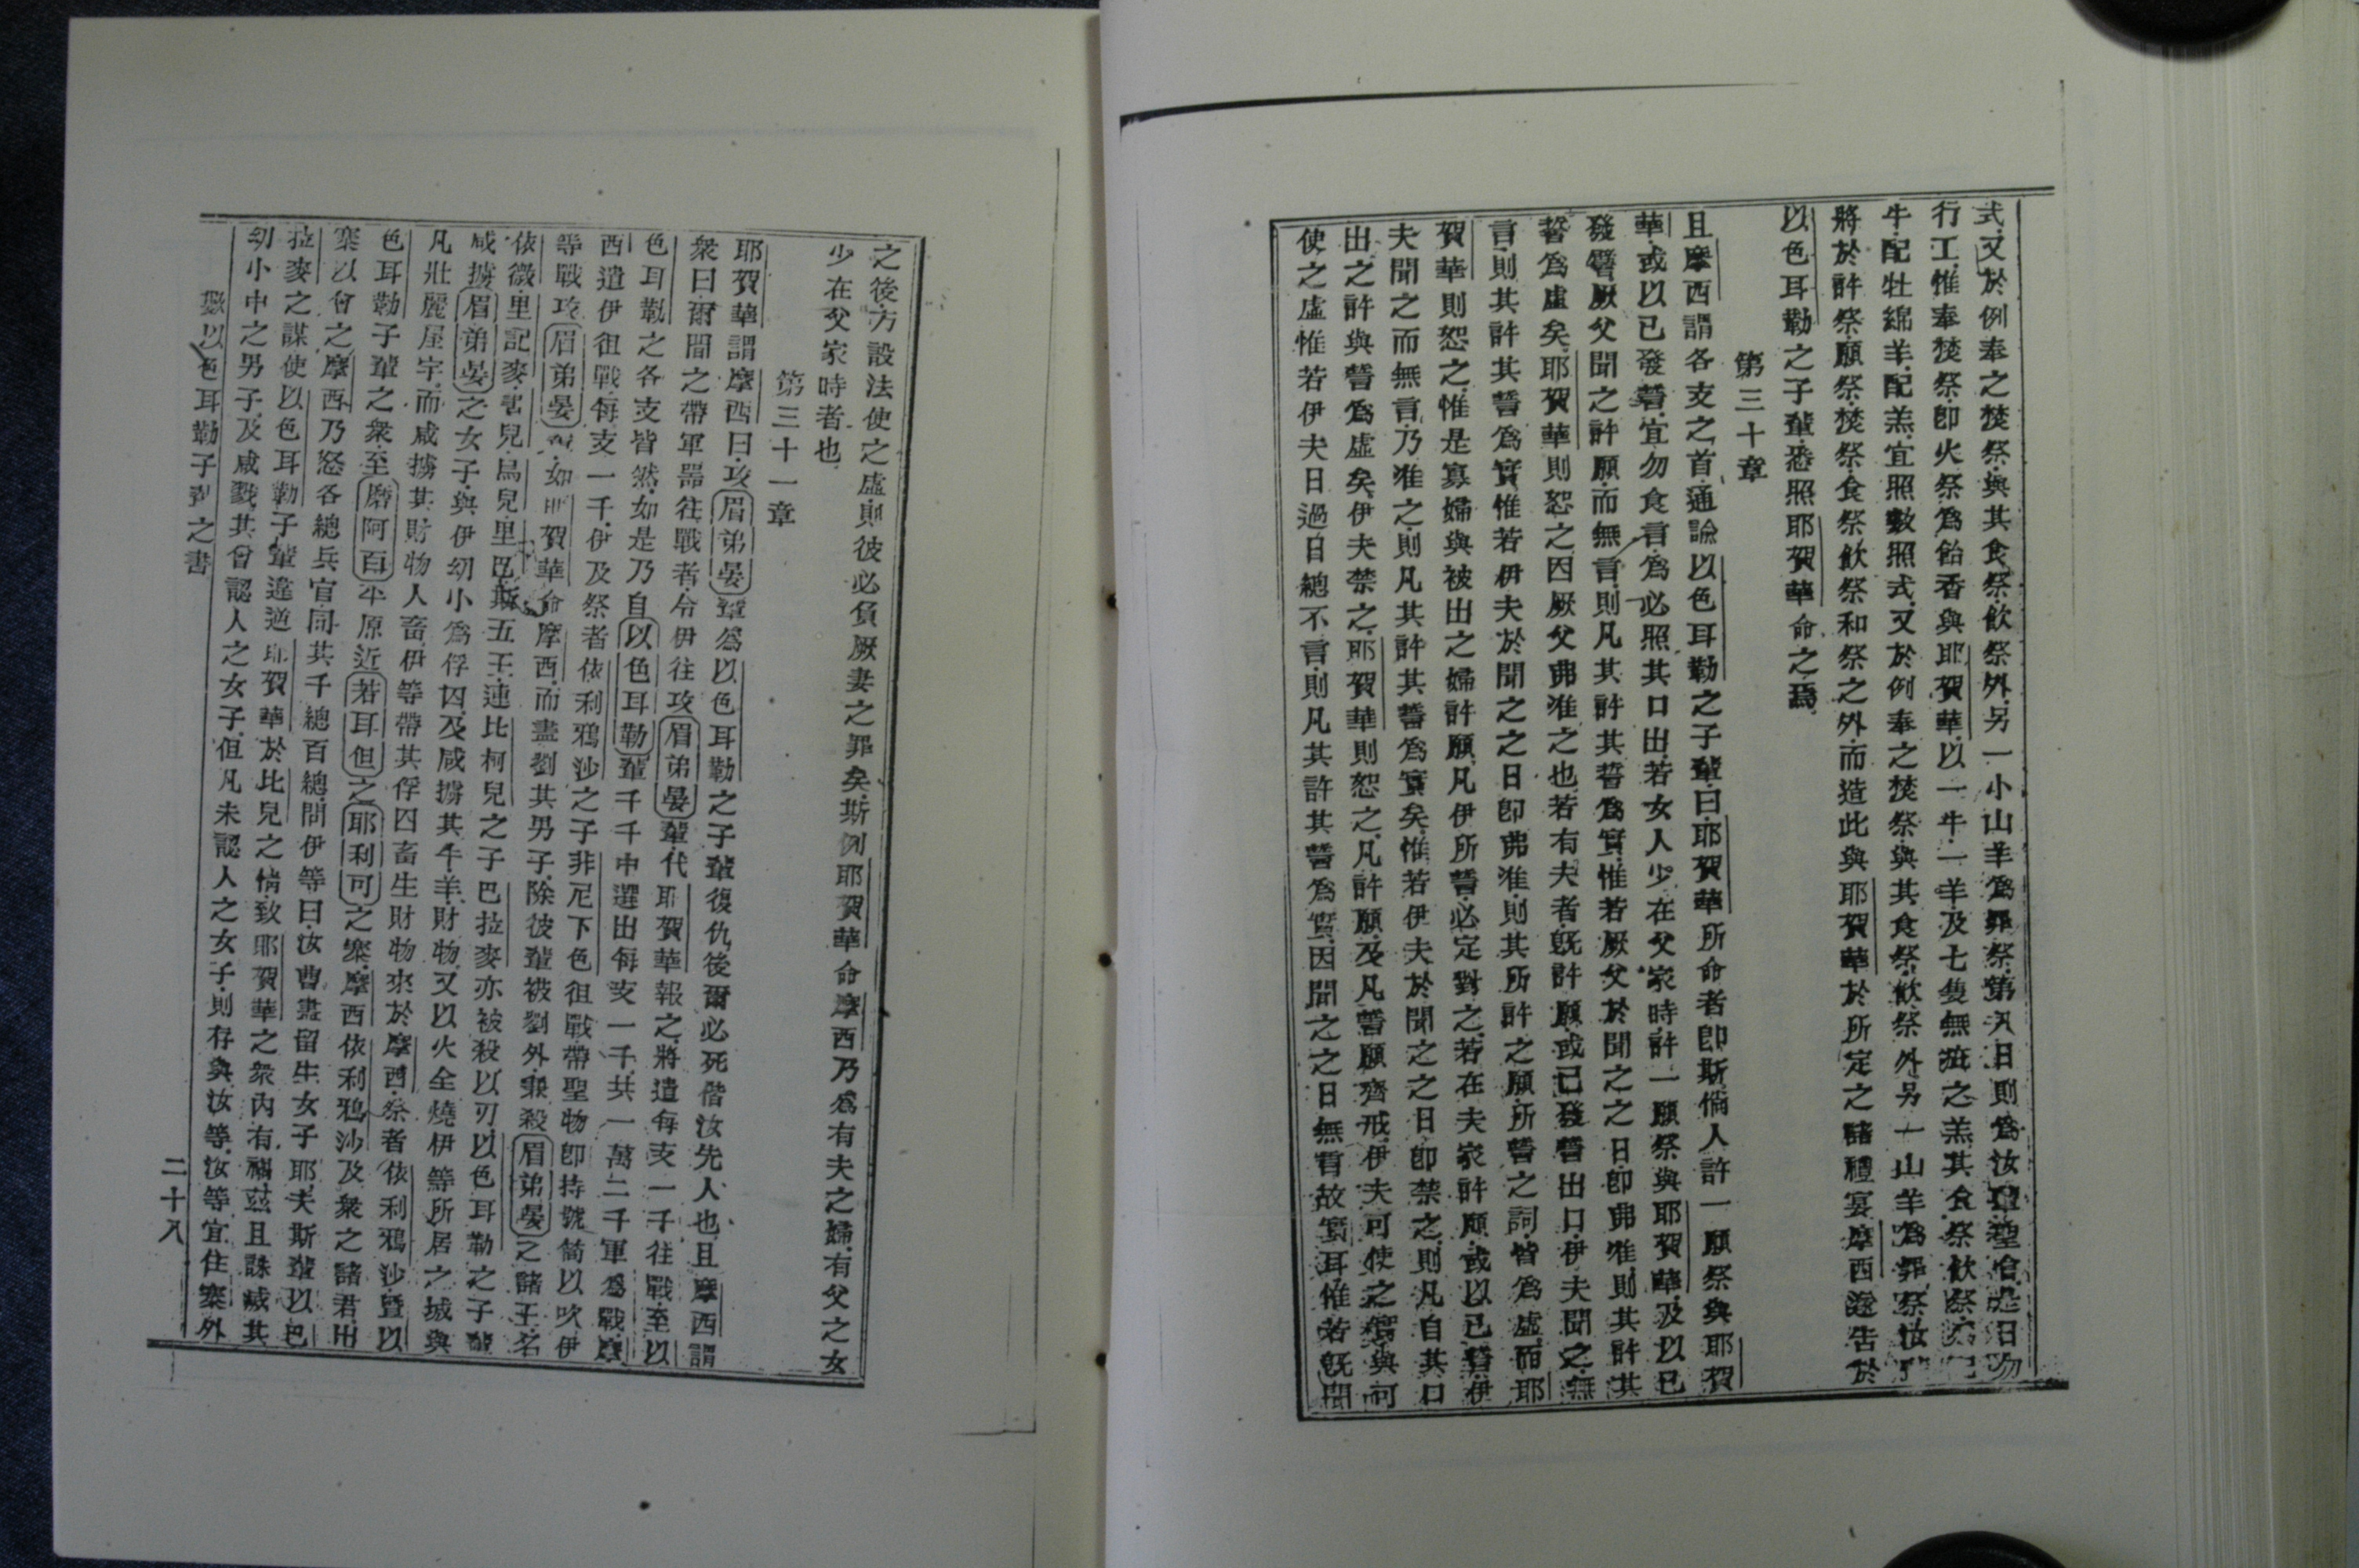 式又於例奉之焚祭與其食祭飲祭外另一小山羊爲罪祭第八日則爲汝輩聖會是日勿
行工惟奉焚祭卽火祭爲飴香與耶賀華以一牛一羊及七隻無疵之羔其食祭飲祭
牛配牡綿羊配羔宜照數照式又於例奉之焚祭與其食祭飲祭外另一山羊爲罪祭汝
將於許祭願祭焚祭食祭飲祭和祭之外而造此與耶賀華於所定之諸禮宴摩西遂告於
以色耳勒之子輩悉照耶賀華命之焉
第三十章
且摩西謂各支之首通論以色耳勒之子輩曰耶賀華所命者卽斯倘人許一願祭與耶賀
華或以已發誓宜勿食言爲必照其口出若女人少在父家時許一願祭與耶賀華及以已
發誓厥父聞之許願而無言則凡其許其誓爲實惟若厥父於聞之之日卽弗准則其許其
誓爲虛矣耶賀華則恕之因厥父弗准之也若有夫者旣許願或已發誓出口伊夫聞之無
言則其許其誓爲實惟若伊夫於聞之之日卽弗准則其所許之願所誓之詞皆爲虛而耶
賀華則恕之惟是寡婦與被出之婦許願凡伊所誓必定對之若在夫家許願或以已發誓伊
夫聞之而無言乃准之則凡其許其誓爲實矣惟若伊夫於聞之之日卽禁之則凡自其口
出之許與誓爲虛矣伊夫禁之耶賀華則恕之凡許願及凡誓願齊戒伊夫可使之實與可
使之虛惟若伊夫日過日總不言則凡其許其誓爲實因聞之之日無言故實耳惟若旣聞
之後方設法使之虛則彼必負厥妻之罪矣斯例耶賀華命摩西乃爲有夫之婦有父之女
少在父家時者也
第三十一章
耶賀華謂摩西曰攻眉弟晏輩爲以色耳勒之子輩復仇後爾必死偕汝先人也且摩西謂
衆曰爾間之帶軍器往戰者令伊往攻眉弟晏輩代耶賀華報之將遣每支一千往戰至以
色耳勒之各支皆然如是乃自以色耳勒輩千千中選出每支一千共一萬二千軍爲戰摩
西遣伊徂戰每支一千伊及祭者依利鴉沙之子非尼下色徂戰帶聖物卽持號筒以吹伊
等戰攻眉弟晏如耶賀華命摩西而盡劉其男子除彼輩被劉外兼殺眉弟晏之諸王名
依微里記麥書兒烏兒里巴斯五王連比柯兒之子巴拉麥亦被殺以刃以色耳勒之子輩
咸擄眉弟晏之女子與伊幼小爲俘囚及咸擄其牛羊財物又以火全燒伊等所居之城與
凡壯麗屋宇而咸擄其財物人畜伊等帶其俘囚畜生財物來於摩西祭者依利鴉沙曁以
色耳勒子輩之衆至磨阿百平原近若耳但之耶利可之寨摩西依利鴉沙及衆之諸君出
寨以會之摩西乃怒各總兵官同其千總百總問伊等曰汝曹盡留生女子耶夫斯輩以巴
拉麥之謀使以色耳勒子輩違逆耶賀華於比兒之情致耶賀華之衆內有禍茲且誅滅其
幼小中之男子及咸戮其曾認人之女子但凡未認人之女子則存與汝等汝等宜住寨外
數以色耳勒子輩之書
二十八